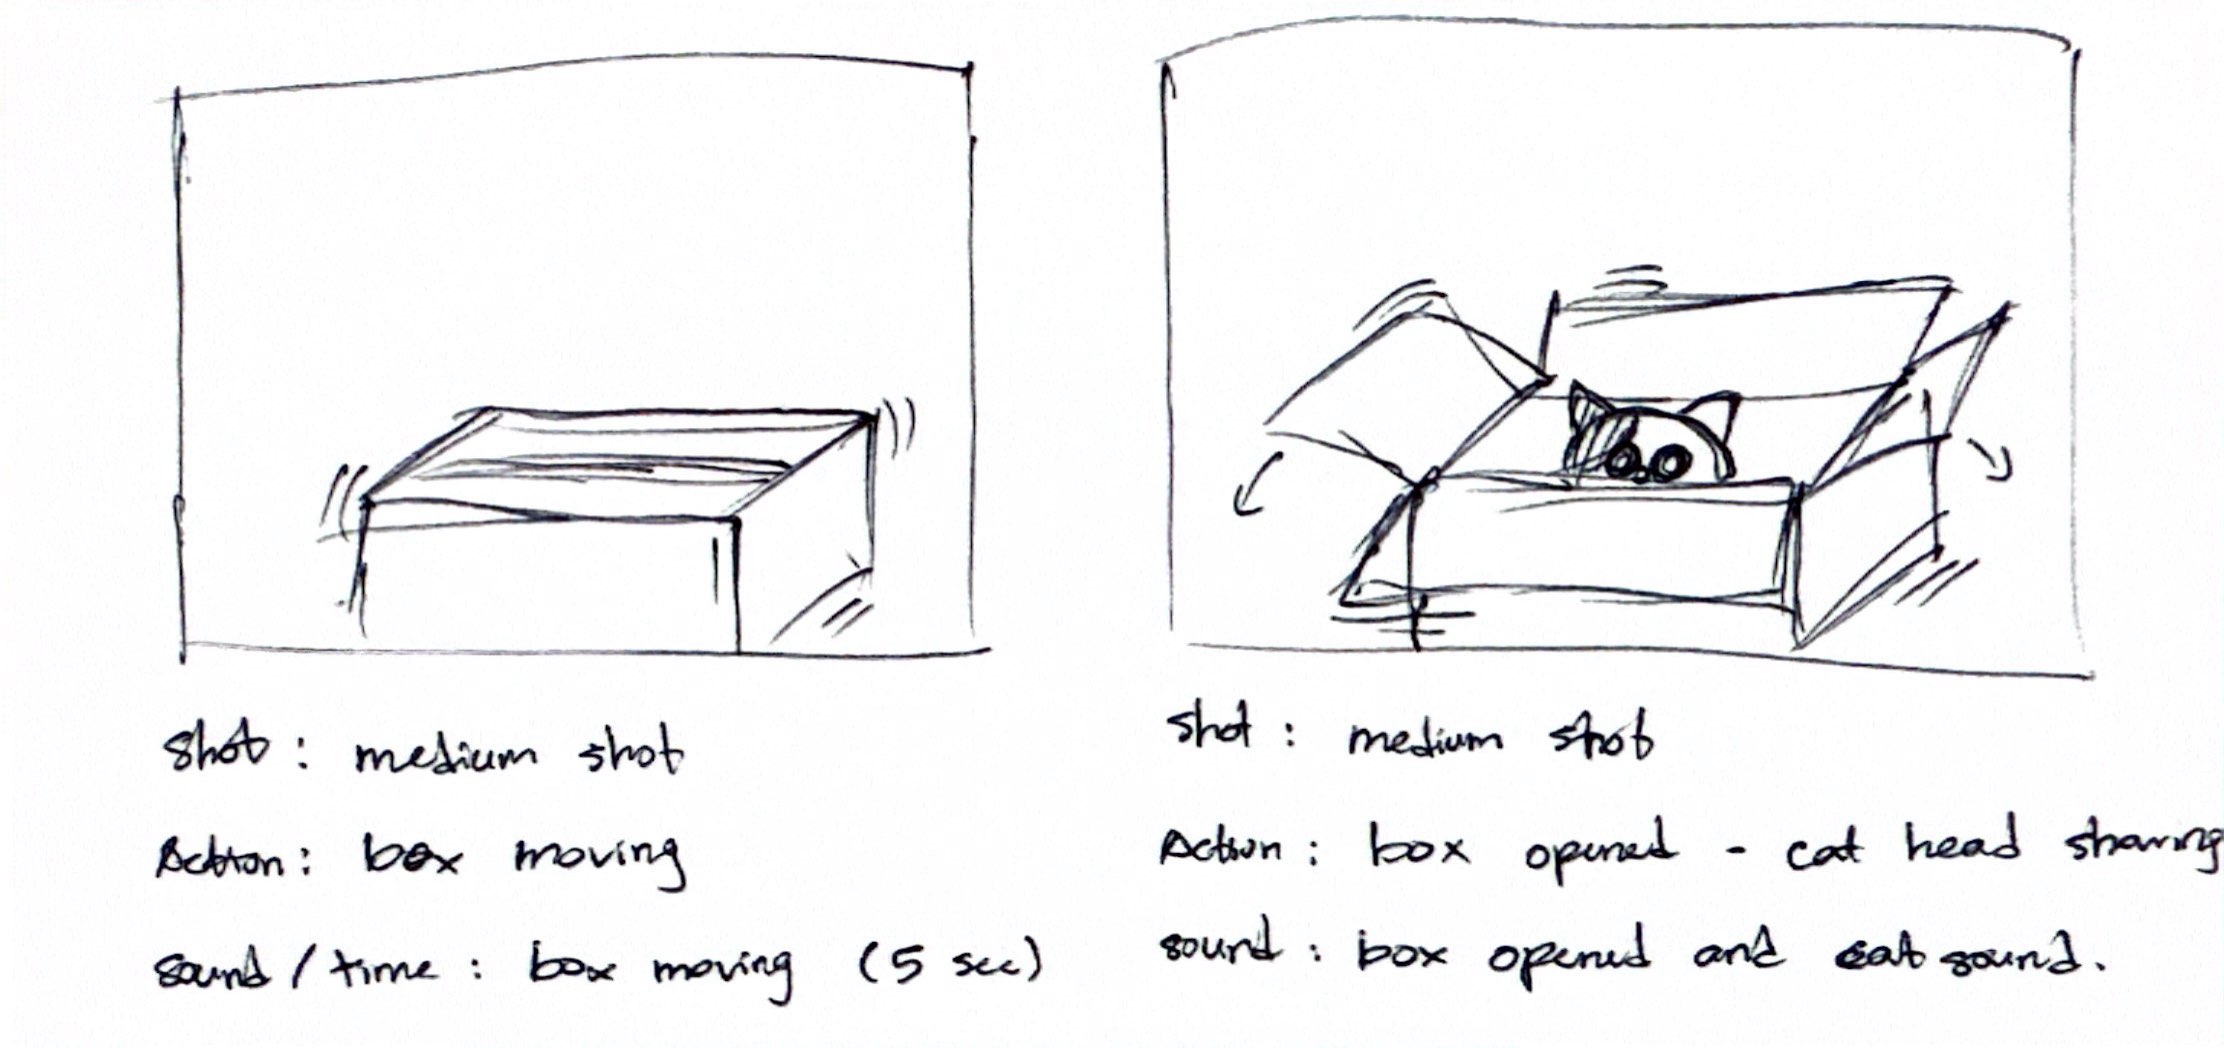 Shot : medium shot
Action : box moving
sound / time : box moving (5 sec)
Shot : medium shot
Action : box opened - cat head showing
sound : box opened and cat sound.